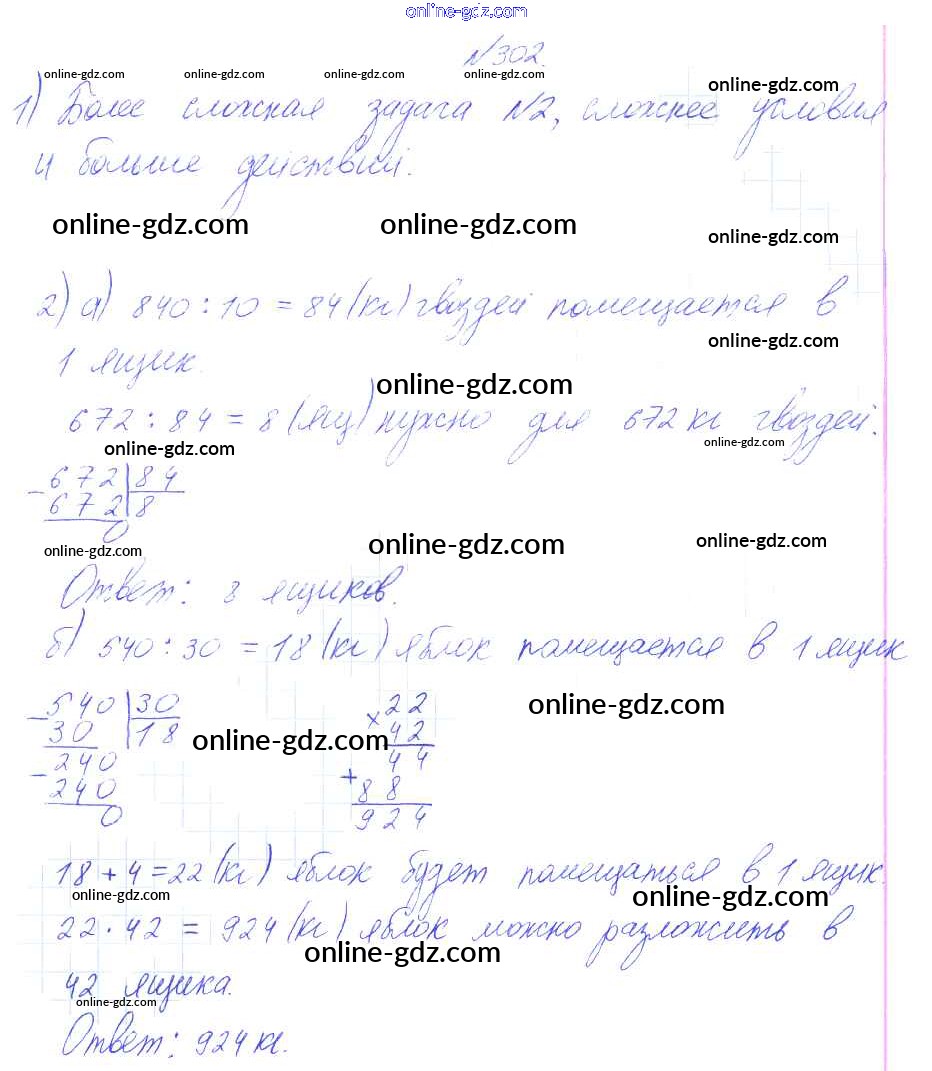 online-gdz.com
№302.
online-gdz.com online-gdz.com online-gdz.com online-gdz.com online-gdz.com
1) Более сложная задача №2, сложнее условия
и больше действий.
online-gdz.com online-gdz.com online-gdz.com
2) а) 840 : 10 = 84 (кг) гвоздей помещается в
online-gdz.com
1 ящик.
online-gdz.com
672 : 84 = 8 (ящ) нужно для 672 кг гвоздей.
online-gdz.com online-gdz.com
- 672 | 84
672 | 8
0
online-gdz.com online-gdz.com online-gdz.com
Ответ: 8 ящиков.
б) 540 : 30 = 18 (кг) яблок помещается в 1 ящик
- 540 | 30
30 | 18
- 240
240
0
online-gdz.com online-gdz.com
× 22
42
+ 44
88
924
18 + 4 = 22 (кг) яблок будет помещаться в 1 ящик.
online-gdz.com online-gdz.com
22 · 42 = 924 (кг) яблок можно разложить в
online-gdz.com
42 ящика.
online-gdz.com
Ответ: 924 кг.